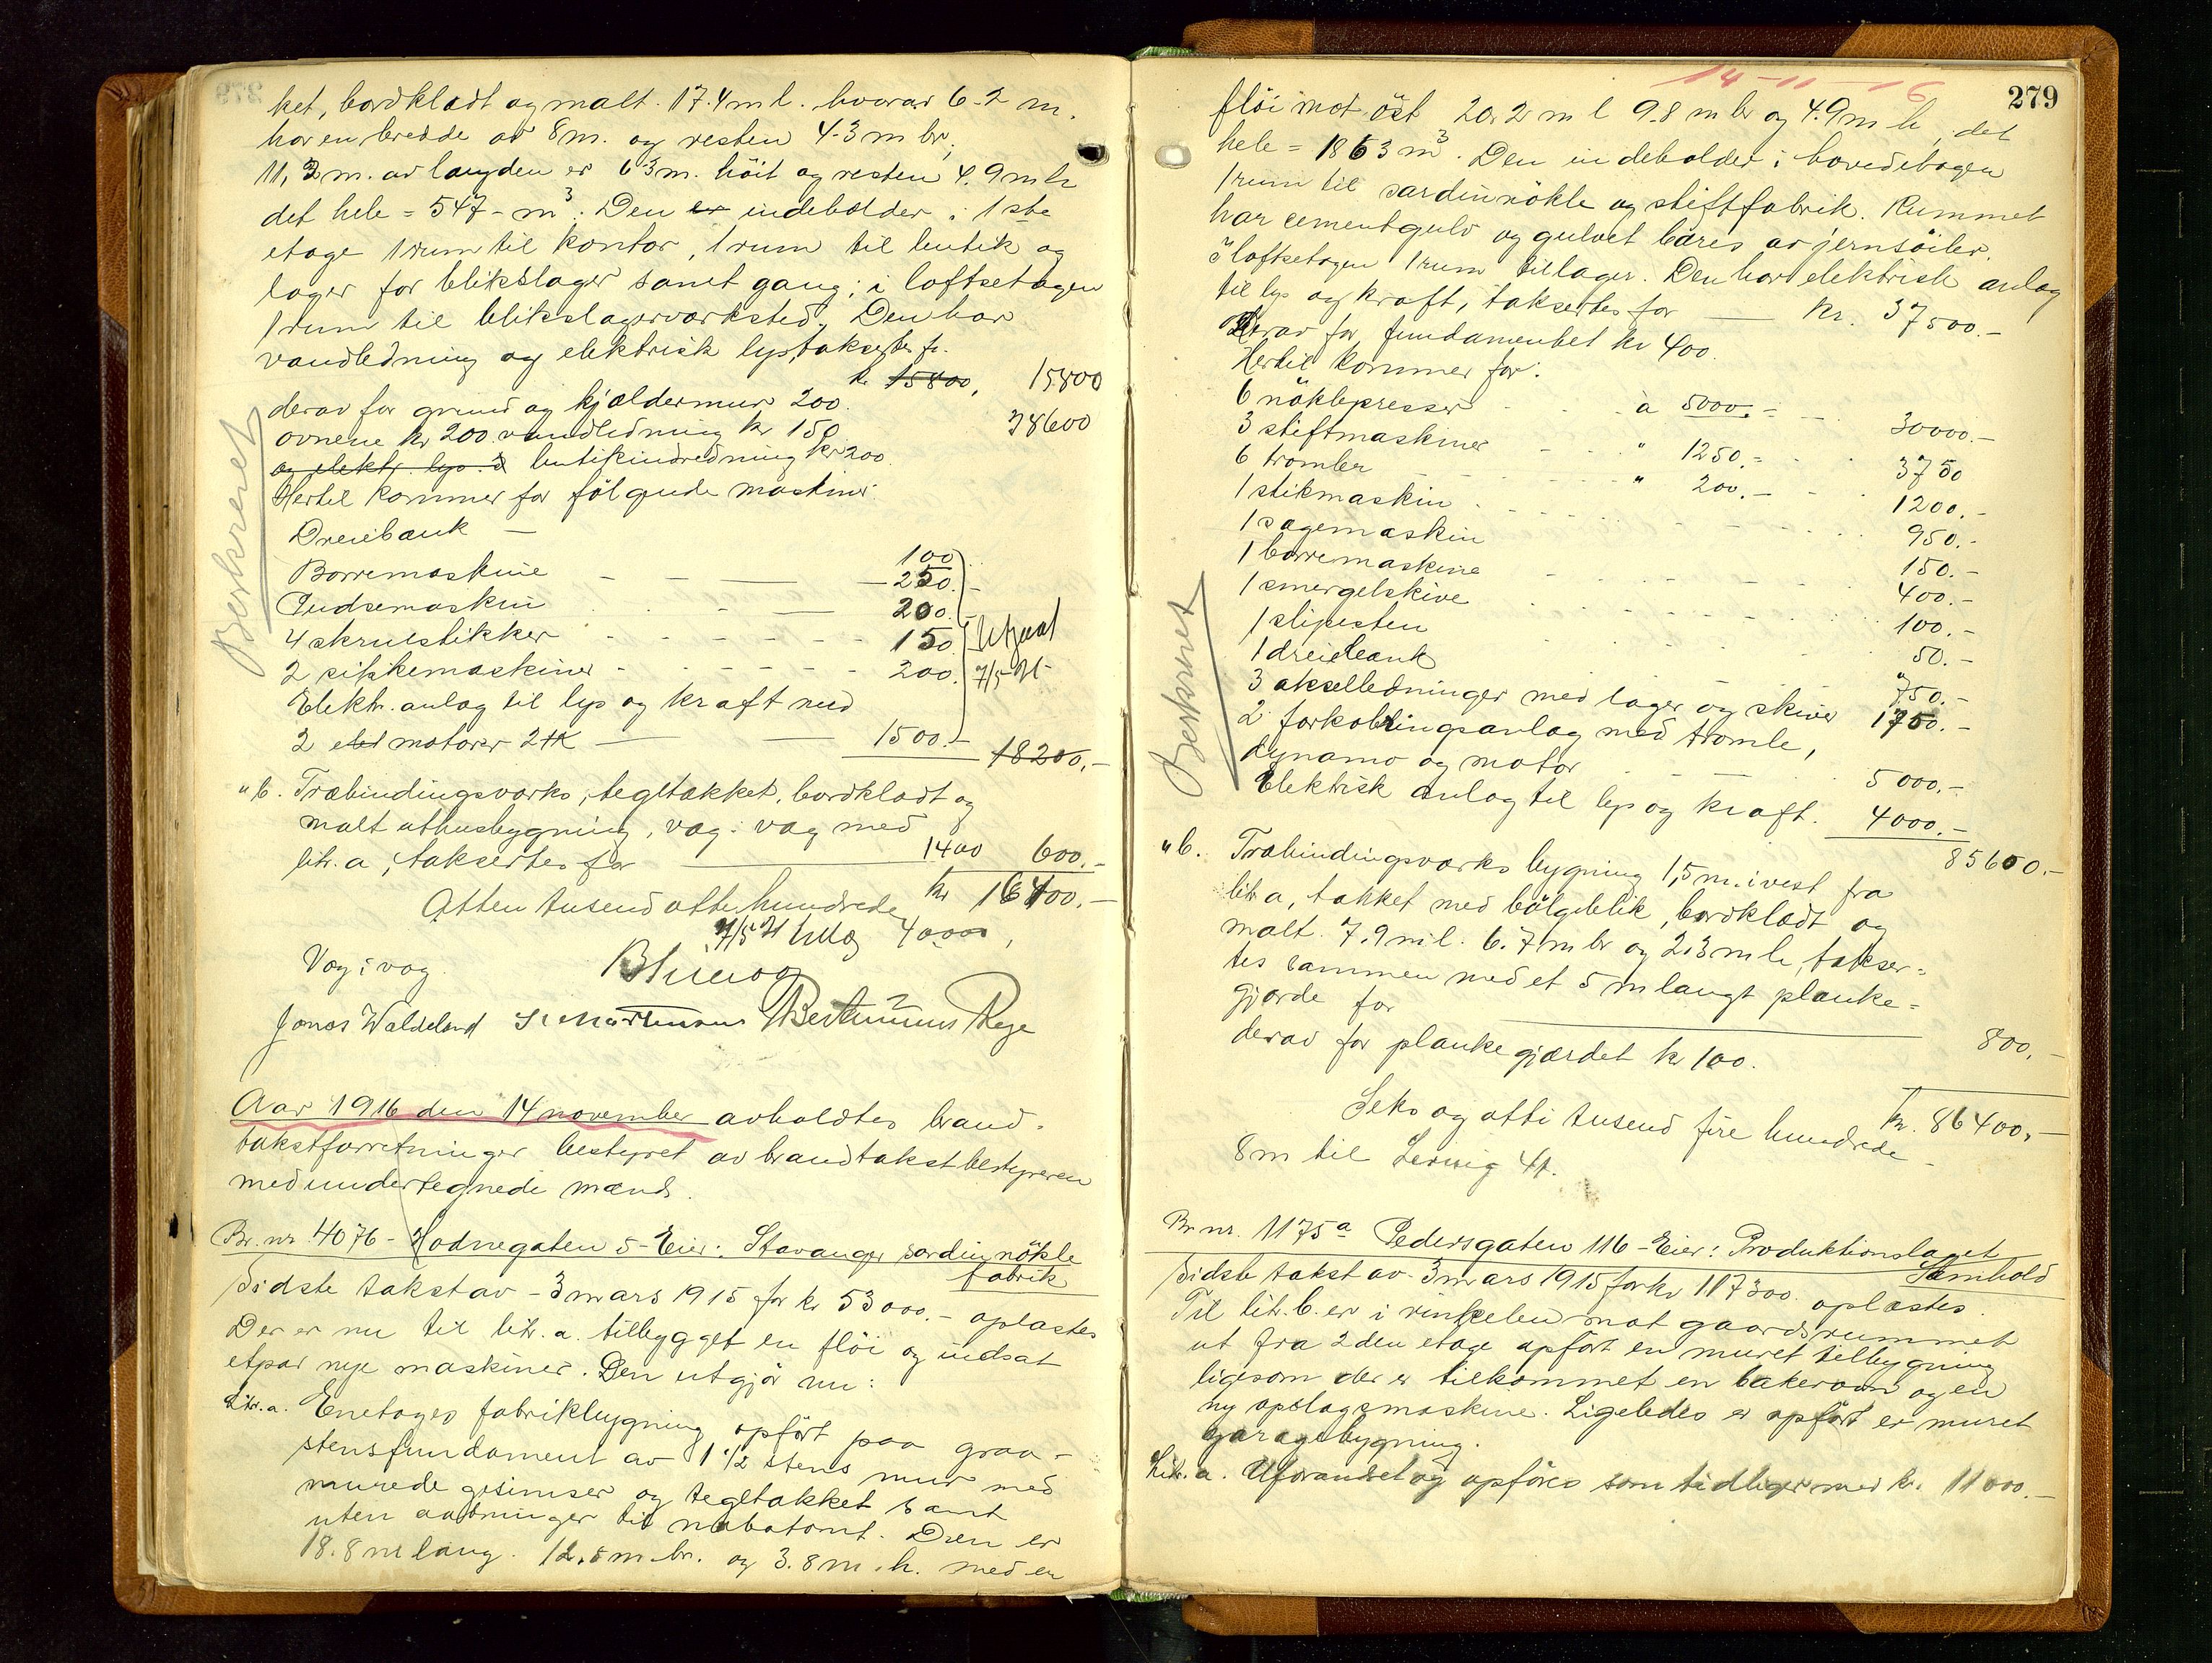 ket, bordklædt og malt. 17.4 m l. hvorav 6.2 m.
har en bredde av 8 m. og resten 4.3 m br,
11,2 m. av længden er 6.3 m. höit og resten 4.9 m h
det hele = 547 - m³. Den er indeholder i 1ste
etage 1 rum til kontor, 1 rum til butik og
lager for blikslager samt gang; i loftsetagen
1 rum til blikslagerværksted. Den har
vandledning og elektrisk lys, taksertes for
kr. 15800, 15800
derav for grund og kjældermur 200.
ovnene kr 200. vandledning kr 150 38600
og elektr. lys. butikindredning kr 200
Hertil kommer for fölgende maskiner:
Dreiebænk —
100
Borremaskine — — — 250.
Pudsemaskin — 200
4 skruestikker - - - - - 150
2 sikkemaskiner - - - - - 200.
Utgaat 7/5-21
Elektr. anlæg til lys og kraft med
2 elet motorer 2 HK — — 1500.- 18200.-
" b. Træbindingsværks, tegltækket, bordklædt og
malt uthusbygning, væg i væg med
litr. a, taksertes for — 1400 600.-
kr 16400.-
Atten tusend otte hundrede
7/5 21 40000,
Væg i væg.
Jonas Waldeland
Berkrenet
Aar 1916 den 14 november avholdtes brand-
takstforretninger bestyret av brandtakstbestyreren
med undertegnede mænd.
Br. nr. 4076 - Hodnegaten 5 - Eier: Stavanger sardinnökle
fabrik
Sidste takst av - 3 mars 1915 for kr 53000.- oplæstes
Der er nu til litr. a. tilbygget en flöi og indsat
etpar nye maskiner. Den utgjör nu:
Litr. a. Enetages fabrikbygning opfört paa graa-
stensfundament av 1 1/2 stens mur med
murede gesimser og tegltækket samt
uten aapninger til nabotomt. Den er
18.8 m lang. 12.8 m. br. og 3.8 m. h. med en
14-11-16
279
flöi mot öst 20.2 m l 9.8 m br og 4.9 m h, det
hele = 1863 m³. Den indeholder i hovedetagen
1 rum til sardinnökle og stiftfabrik. Rummet
har cementgulv og gulvet bæres av jernsöiler.
I loftsetagen 1 rum til lager. Den har elektrisk anlæg
til lys og kraft, taksertes for — kr. 37500.-
Derav for fundamentet kr 400.
Hertil kommer for:
6 nöklepresser - - - à 5000.- - - 30000.-
3 stiftmaskiner - - - " 1250.- - 3750
6 tromler - - - - " 200.- - 1200.-
1 stikmaskin - - - - 950.-
1 sagemaskin - - - - 150.-
1 borremaskine - - - - 400.-
1 smergelskive - - - - 100.-
1 slipesten - - - - 50.-
1 dreiebænk - - - - 750.-
3 akselledninger med lager og skiver 1750.-
2 forkobringsanlæg med tromle,
dynamo og motor - - - 5000.-
Elektrisk anlæg til lys og kraft. 4000.-
85600.-
Berkrenet
" b. Træbindingsværks bygning 1,5 m. i vest fra
litr a, tækket med bölgeblik, bordklædt og
malt. 7.9 m l. 6.7 m br og 2.3 m h, takser-
tes sammen med et 5 m langt planke-
gjærde for — 800.-
derav for plankegjærdet kr 100.
kr. 86400,-
Seks og otti tusend fire hundrede —
8 m til Lervig 41.
Br nr. 1175a Pedersgaten 116 - Eier: Produktionslaget
Samhold
Sidste takst av 3 mars 1915 for kr 117300. oplæstes.
Til litr. b. er i vinkelen mot gaardsrummet
ut fra 2den etage opfört en muret tilbygning
ligesom der er tilkommet en bakerovn og en
ny opslagsmaskine. Ligeledes er opfört en muret
garagebygning.
Litr. a. Uforandret og opföres som tidliger med kr. 11000.-